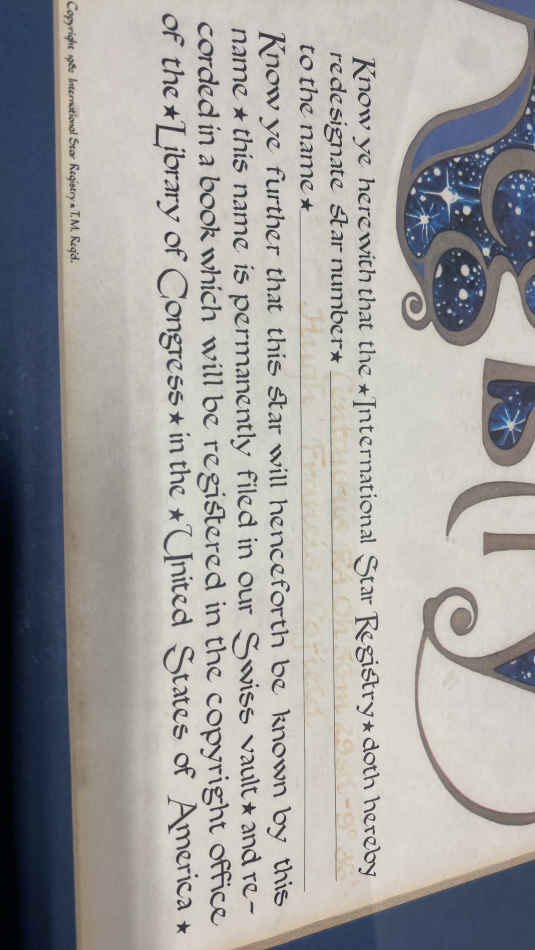 Know ye herewith that the ★ International Star Registry ★ doth hereby
redesignate star number ★
to the name ★ Hugh Francis
Know ye further that this star will henceforth be known by this
name ★ this name is permanently filed in our Swiss vault ★ and re-
corded in a book which will be registered in the copyright office
of the ★ Library of Congress ★ in the ★ United States of America ★
Copyright 1980 International Star Registry ★ T.M. Reg'd.